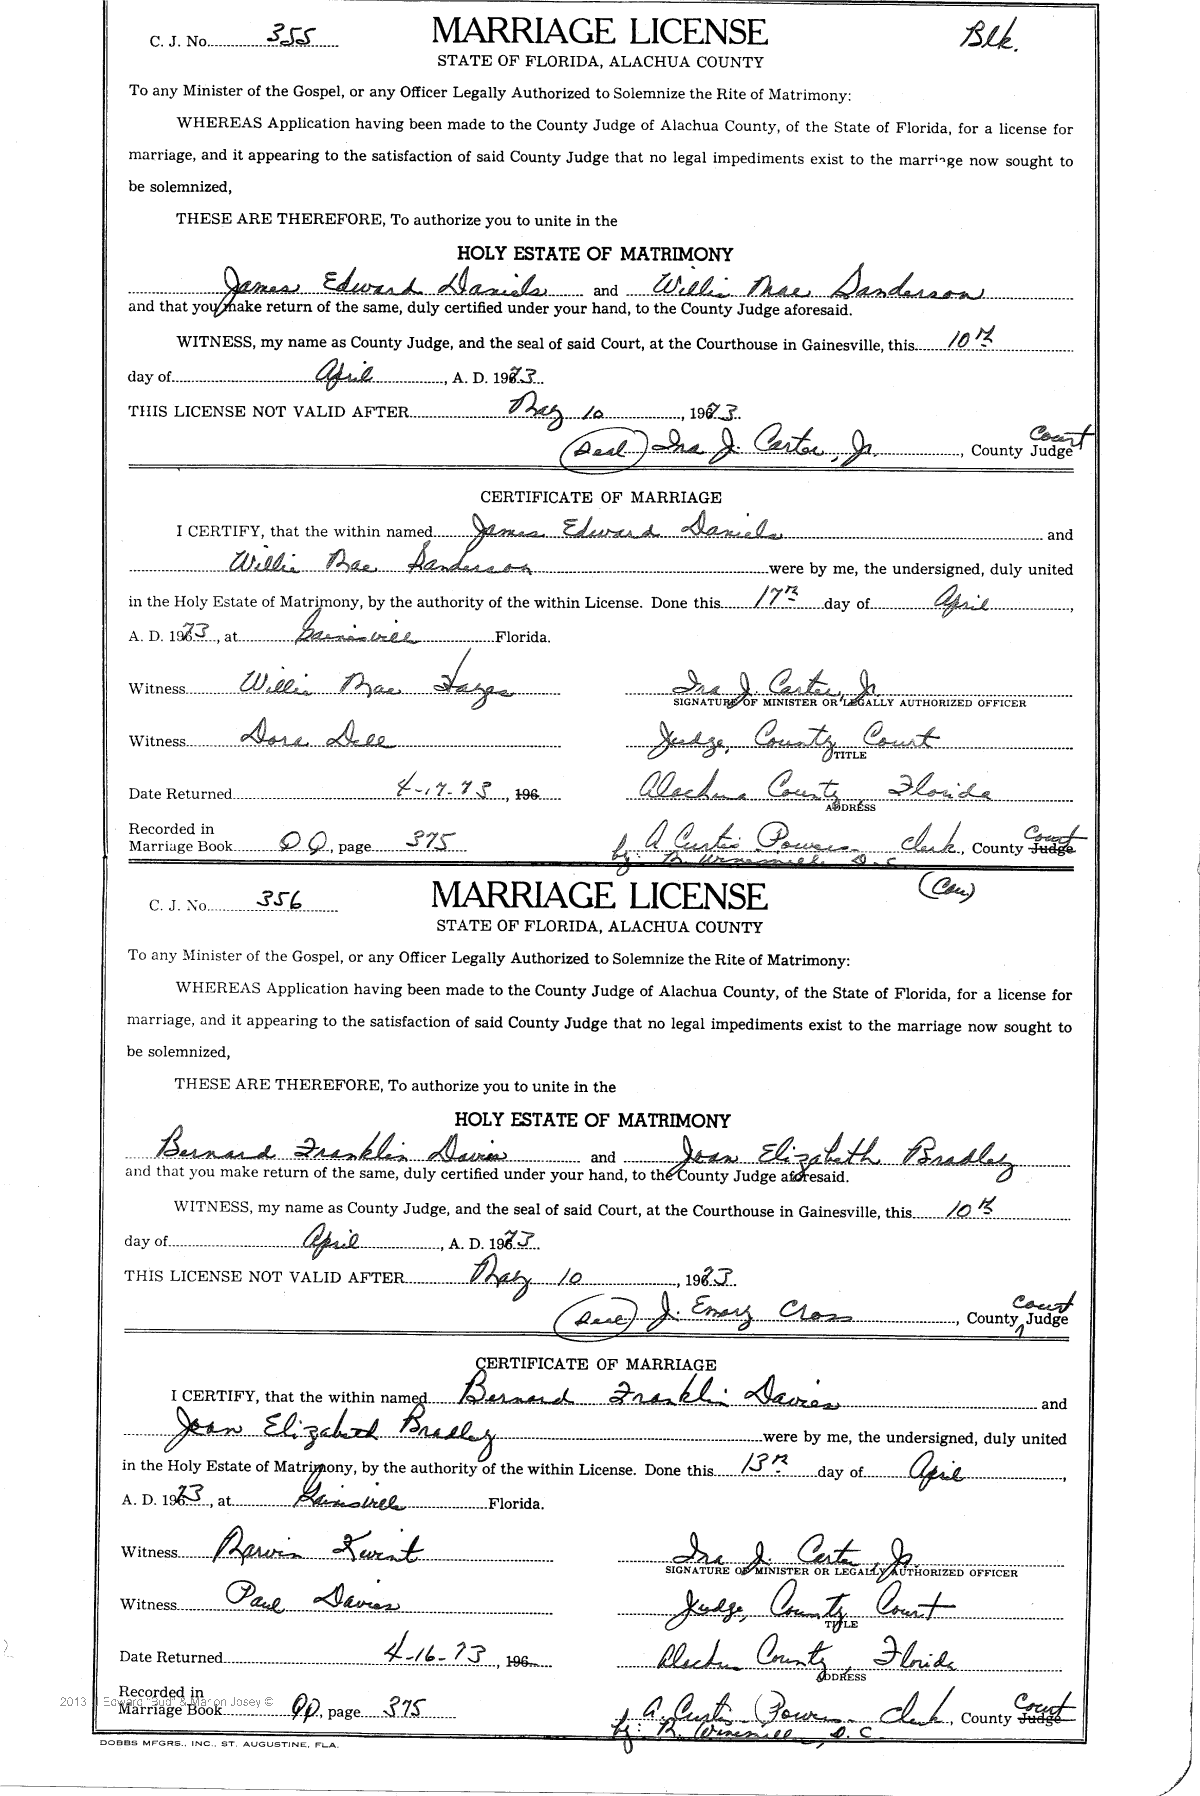 C. J. No. 355 MARRIAGE LICENSE Blk.
STATE OF FLORIDA, ALACHUA COUNTY
To any Minister of the Gospel, or any Officer Legally Authorized to Solemnize the Rite of Matrimony:
WHEREAS Application having been made to the County Judge of Alachua County, of the State of Florida, for a license for
marriage, and it appearing to the satisfaction of said County Judge that no legal impediments exist to the marriage now sought to
be solemnized,
THESE ARE THEREFORE, To authorize you to unite in the
HOLY ESTATE OF MATRIMONY
James Edward Daniels and Willie Mae Sanderson
and that you make return of the same, duly certified under your hand, to the County Judge aforesaid.
WITNESS, my name as County Judge, and the seal of said Court, at the Courthouse in Gainesville, this 10th
day of April, A. D. 1973.
THIS LICENSE NOT VALID AFTER May 10, 1973.
(Seal) Ira J. Carter, Jr., County Court Judge
CERTIFICATE OF MARRIAGE
I CERTIFY, that the within named James Edward Daniels and
Willie Mae Sanderson were by me, the undersigned, duly united
in the Holy Estate of Matrimony, by the authority of the within License. Done this 17th day of April,
A. D. 1973, at Gainesville Florida.
Witness Willie Mae Hayes Ira J. Carter, Jr.
SIGNATURE OF MINISTER OR LEGALLY AUTHORIZED OFFICER
Witness Dora Dell Judge, County Court
TITLE
Date Returned 4-17-73, 196 Alachua County, Florida
ADDRESS
Recorded in
Marriage Book QQ, page 375 A. Curtis Powers Clerk, County Court Judge
by: D. C.
C. J. No. 356 MARRIAGE LICENSE (Cau)
STATE OF FLORIDA, ALACHUA COUNTY
To any Minister of the Gospel, or any Officer Legally Authorized to Solemnize the Rite of Matrimony:
WHEREAS Application having been made to the County Judge of Alachua County, of the State of Florida, for a license for
marriage, and it appearing to the satisfaction of said County Judge that no legal impediments exist to the marriage now sought to
be solemnized,
THESE ARE THEREFORE, To authorize you to unite in the
HOLY ESTATE OF MATRIMONY
Bernard Franklin Davies and Joan Elizabeth Bradley
and that you make return of the same, duly certified under your hand, to the County Judge aforesaid.
WITNESS, my name as County Judge, and the seal of said Court, at the Courthouse in Gainesville, this 10th
day of April, A. D. 1973.
THIS LICENSE NOT VALID AFTER May 10, 1973.
(Seal) J. Emory Cross, County Court Judge
CERTIFICATE OF MARRIAGE
I CERTIFY, that the within named Bernard Franklin Davies and
Joan Elizabeth Bradley were by me, the undersigned, duly united
in the Holy Estate of Matrimony, by the authority of the within License. Done this 13th day of April,
A. D. 1973, at Gainesville Florida.
Witness Ira J. Carter, Jr.
SIGNATURE OF MINISTER OR LEGALLY AUTHORIZED OFFICER
Witness Paul Davies Judge, County Court
TITLE
Date Returned 4-16-73, 196 Alachua County, Florida
ADDRESS
Recorded in
Marriage Book QQ, page 375 A. Curtis Powers Clerk, County Court Judge
by: D. C.
2013 Edward "Bud" & Marion Josey ©
DOBBS MFGRS., INC., ST. AUGUSTINE, FLA.